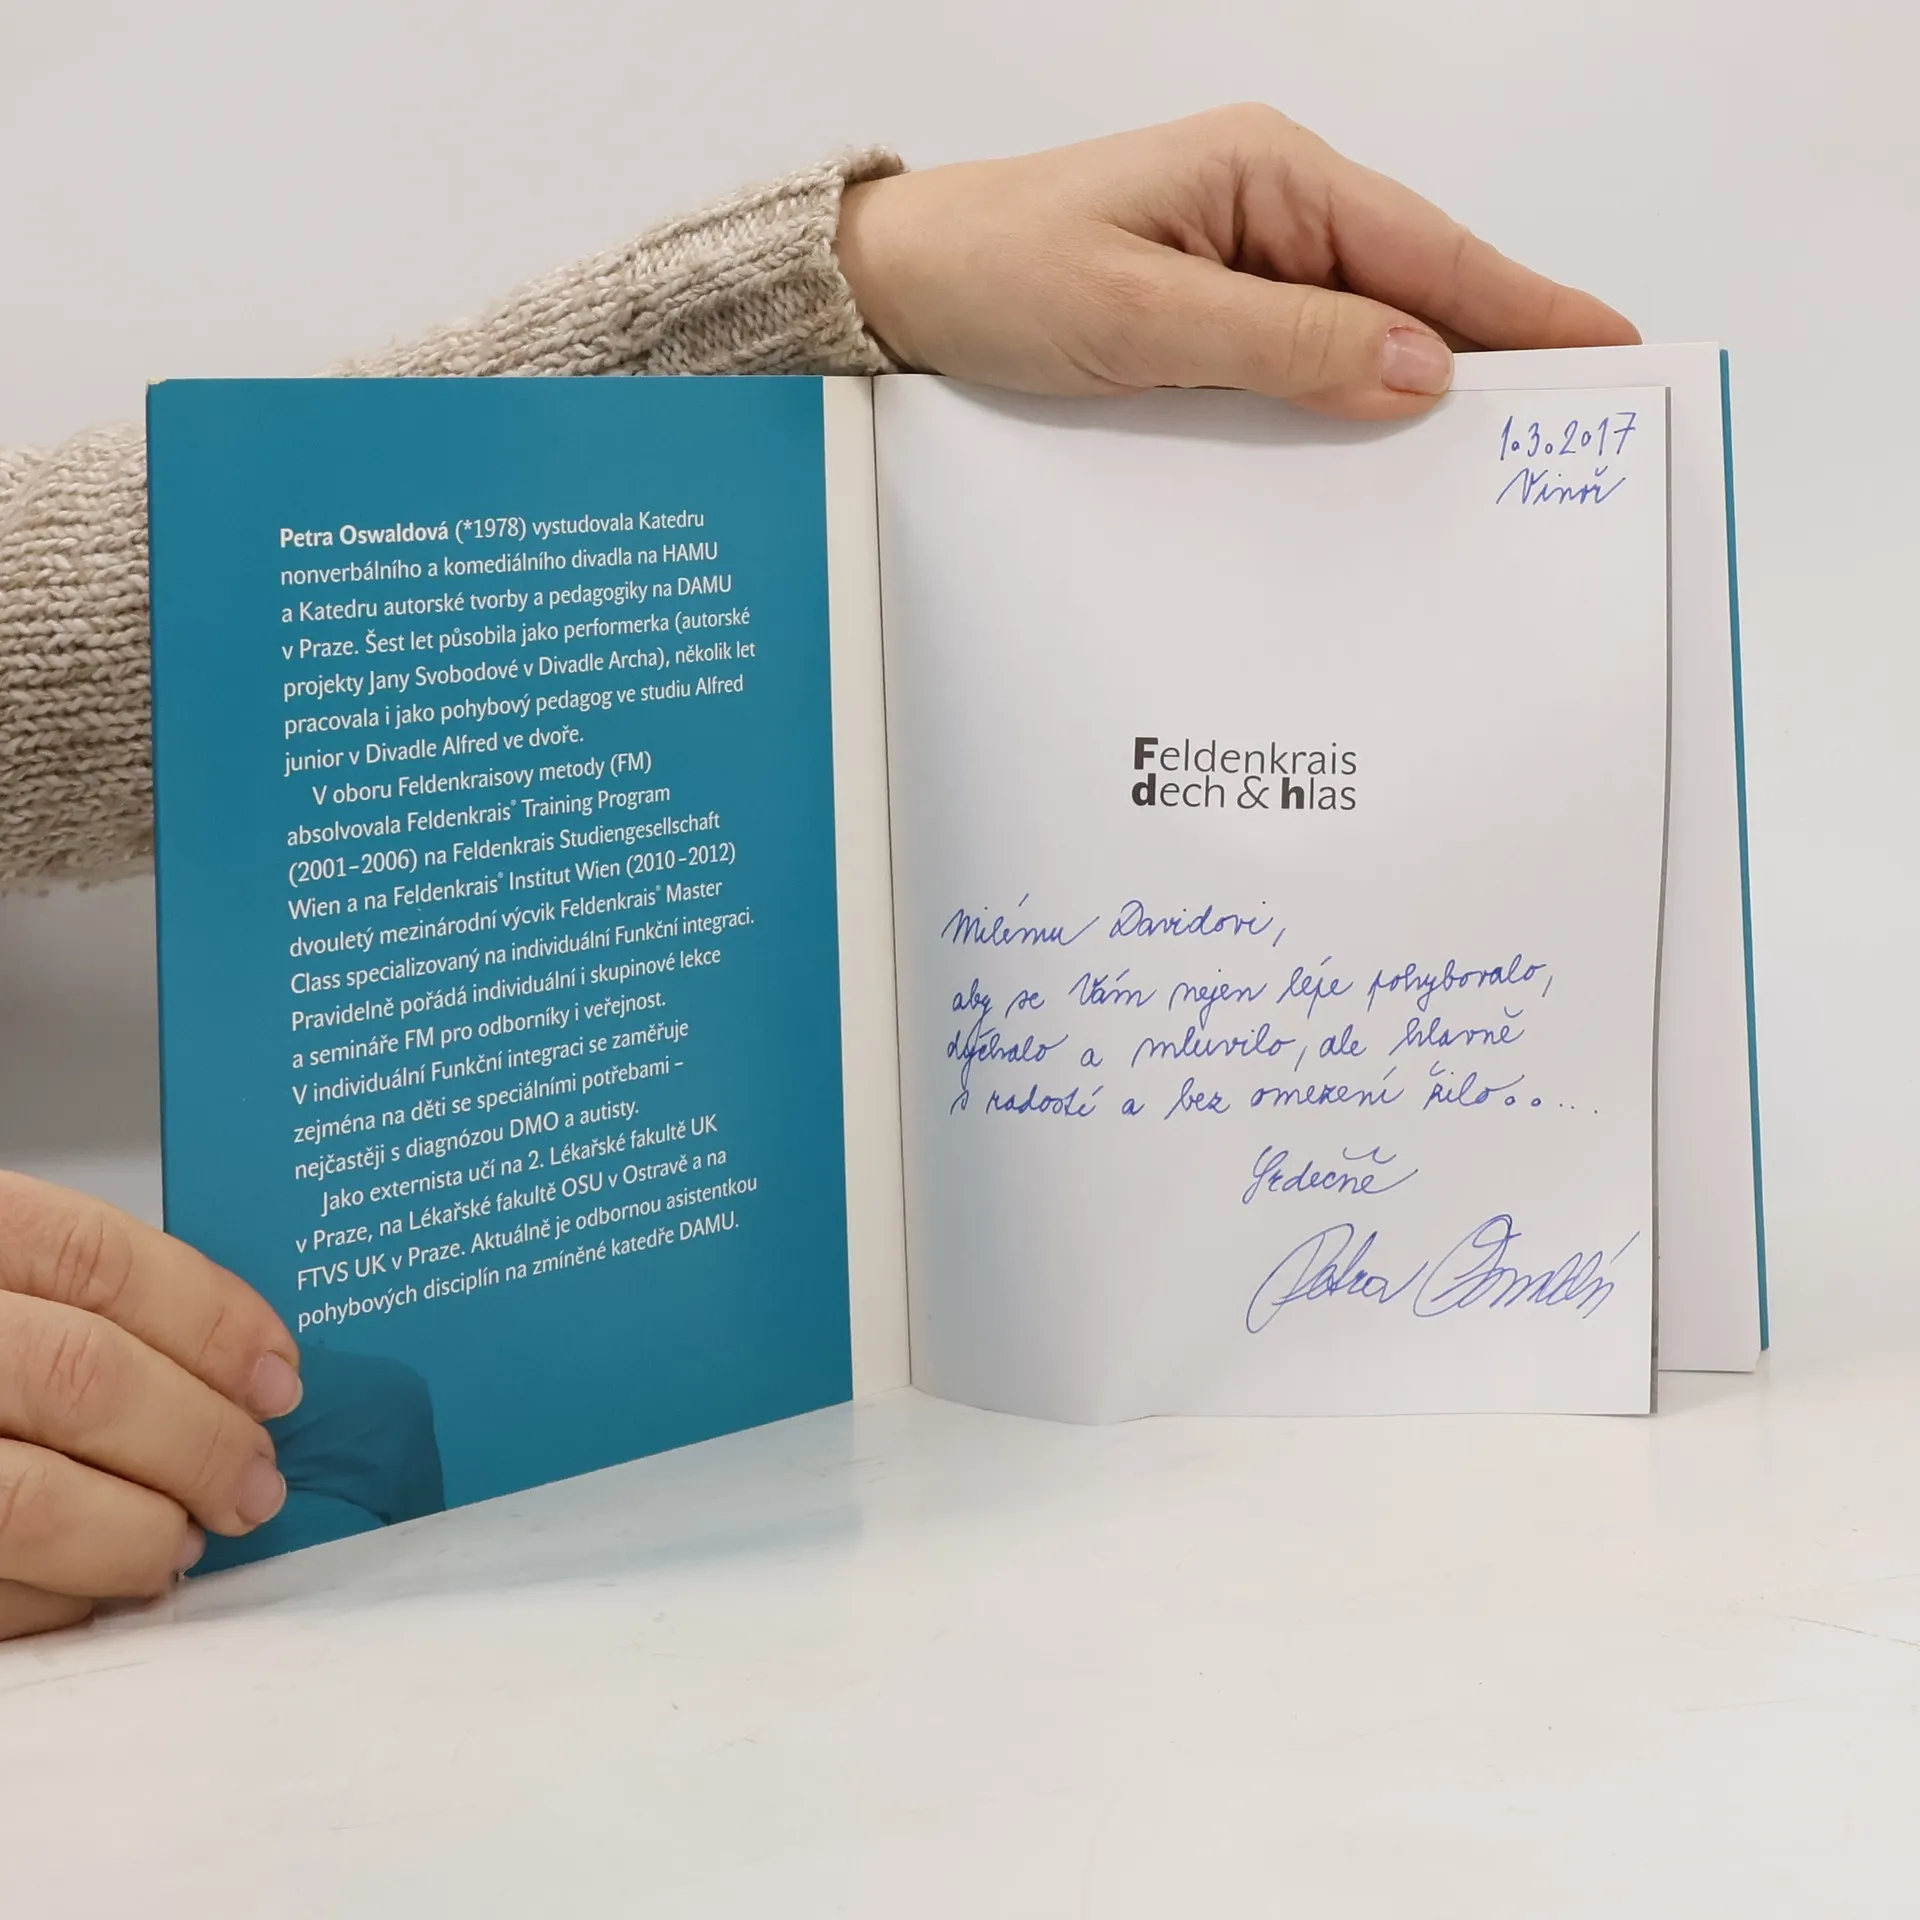 Petra Oswaldová (*1978) vystudovala Katedru
nonverbálního a komediálního divadla na HAMU
a Katedru autorské tvorby a pedagogiky na DAMU
v Praze. Šest let působila jako performerka (autorské
projekty Jany Svobodové v Divadle Archa), několik let
pracovala i jako pohybový pedagog ve studiu Alfred
junior v Divadle Alfred ve dvoře.
V oboru Feldenkraisovy metody (FM)
absolvovala Feldenkrais® Training Program
(2001–2006) na Feldenkrais Studiengesellschaft
Wien a na Feldenkrais® Institut Wien (2010–2012)
dvouletý mezinárodní výcvik Feldenkrais® Master
Class specializovaný na individuální Funkční integraci.
Pravidelně pořádá individuální i skupinové lekce
a semináře FM pro odborníky i veřejnost.
V individuální Funkční integraci se zaměřuje
zejména na děti se speciálními potřebami –
nejčastěji s diagnózou DMO a autisty.
Jako externista učí na 2. Lékařské fakultě UK
v Praze, na Lékařské fakultě OSU v Ostravě a na
FTVS UK v Praze. Aktuálně je odbornou asistentkou
pohybových disciplín na zmíněné katedře DAMU.
1.3.2017
Vinoř
Feldenkrais
dech & hlas
Milému Davidovi,
aby se Vám nejen lépe pohybovalo,
dýchalo a mluvilo, ale hlavně
s radostí a bez omezení žilo.....
Srdečně
Petra